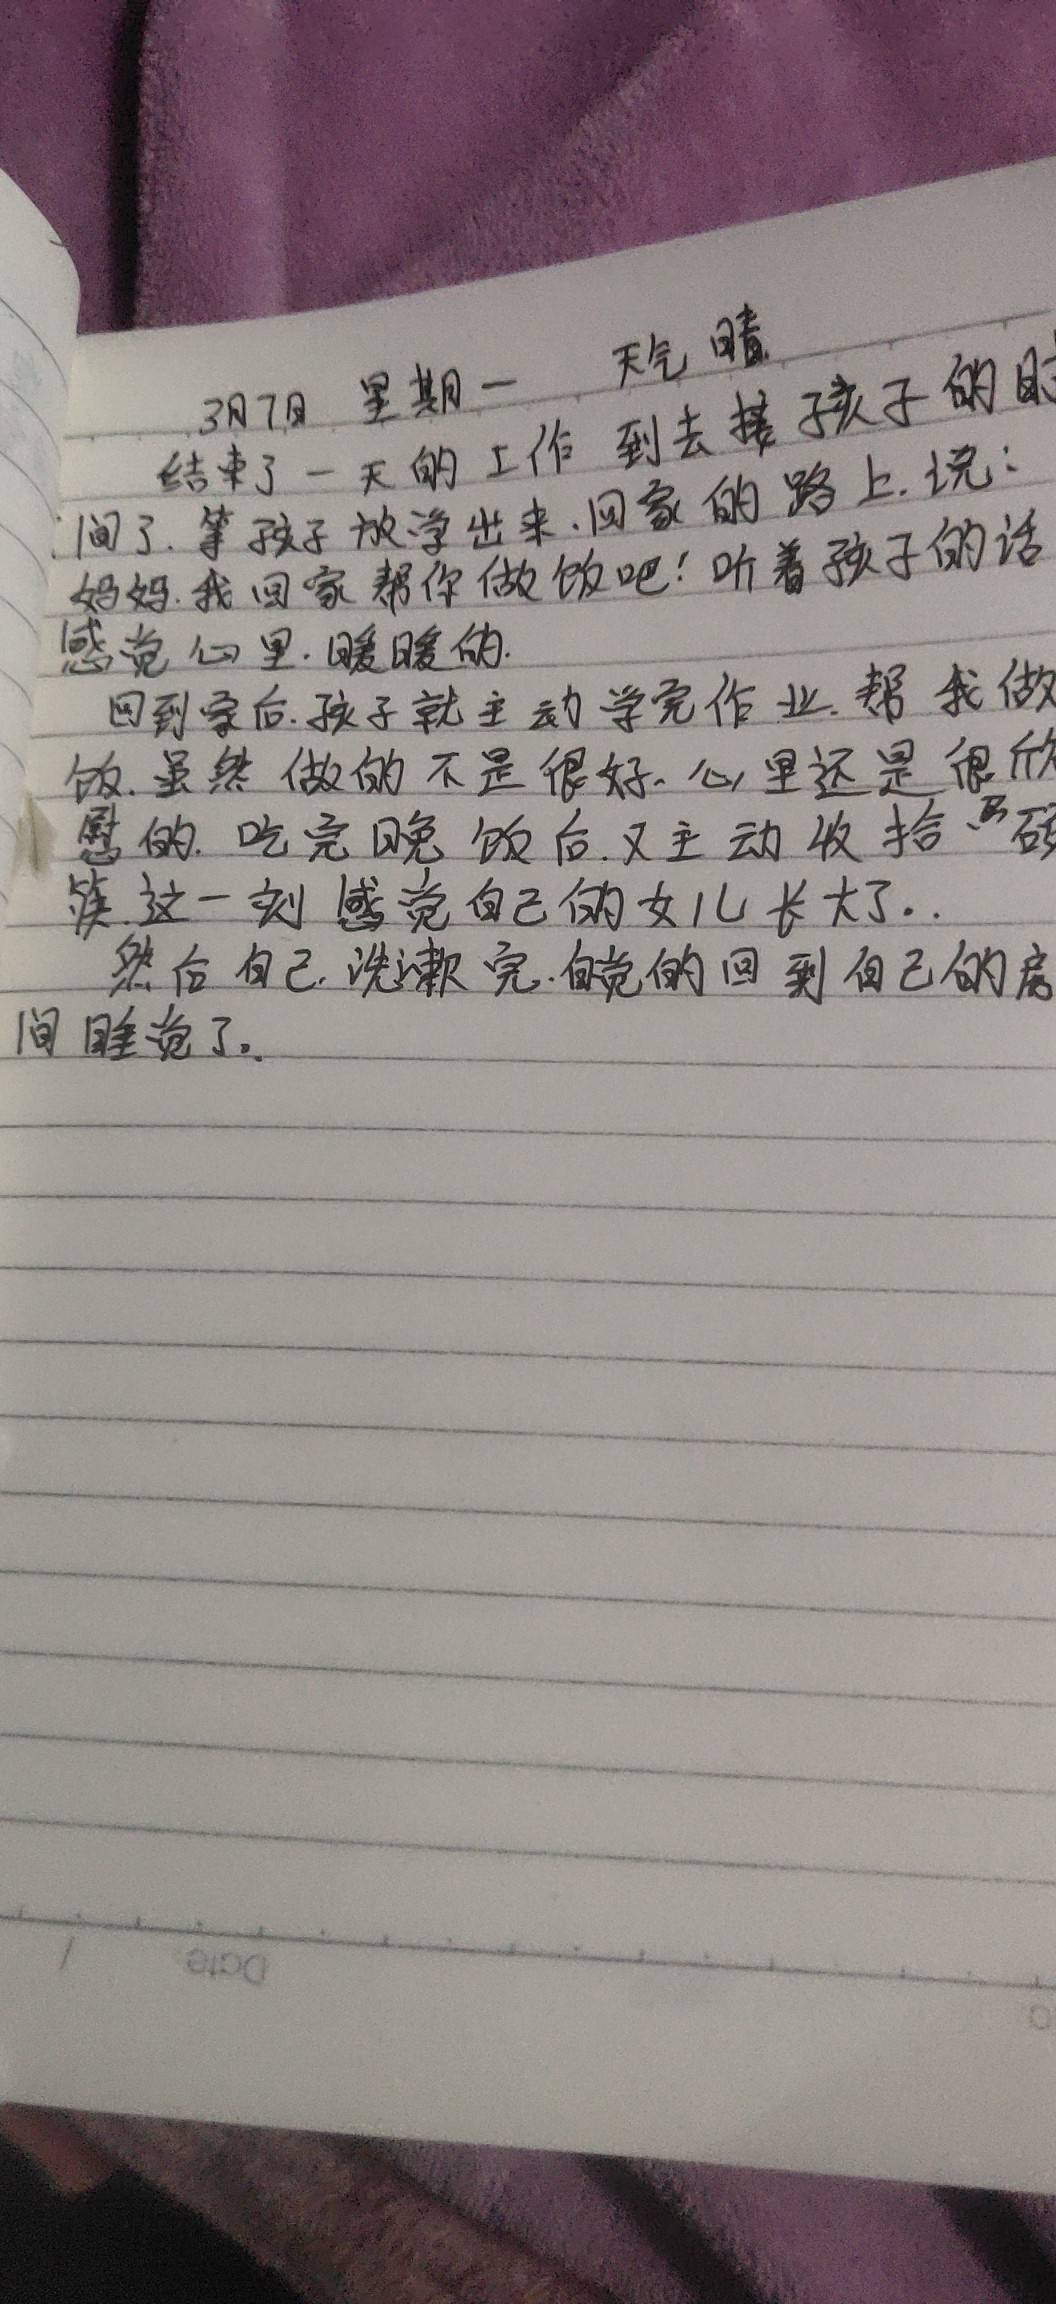 3月7日 星期一 天气 晴
结束了一天的工作 到去接孩子的时
间了.等孩子放学出来.回家的路上.说:
妈妈.我回家帮你做饭吧!听着孩子的话
感觉心里.暖暖的.
回到家后.孩子就主动学完作业.帮我做
饭.虽然做的不是很好.心里还是很欣
慰的.吃完晚饭后.又主动收拾
筷.这一刻感觉自己的女儿长大了..
然后自己.洗漱完.自觉的回到自己的房
间睡觉了。
Date